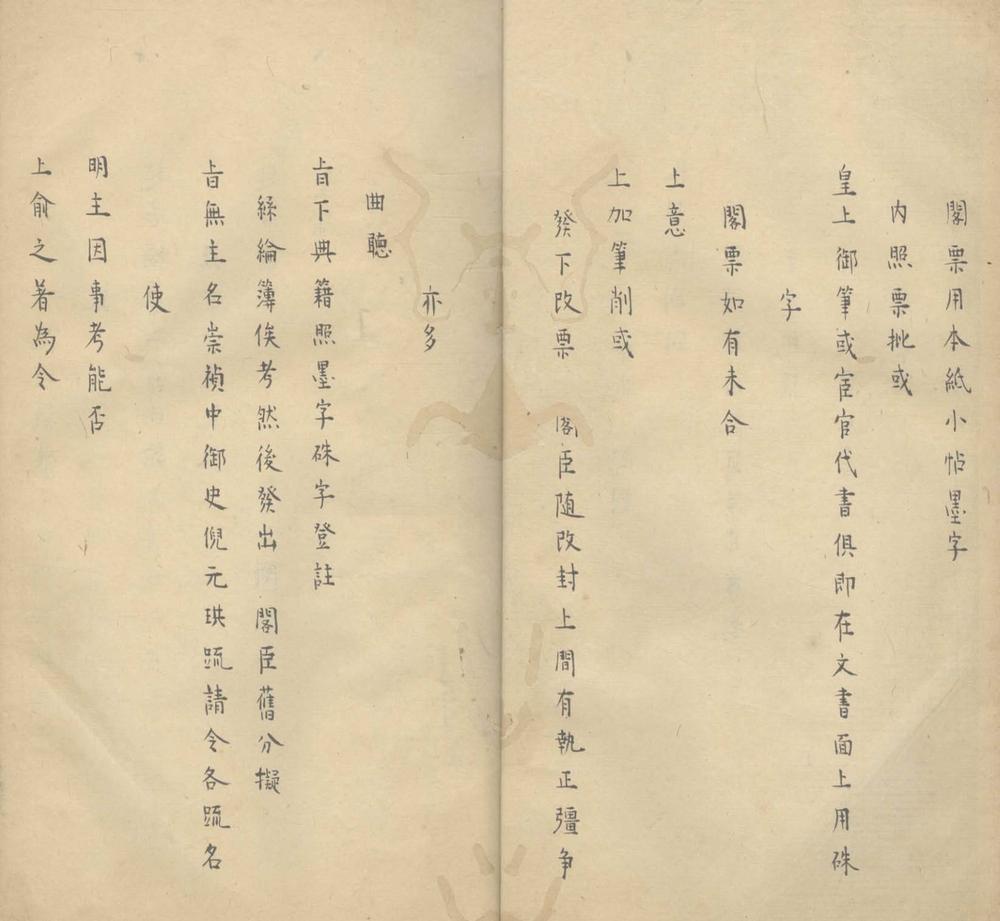 閣票用本紙小帖墨字
内照票批或
皇上御筆或宦官代書俱即在文書面上用硃
字
閣票如有未合
上意
上加筆削或
發下改票 閣臣随改封上間有執正彊争
亦多
曲聽
旨下典籍照墨字硃字登註
絲綸簿俟考然後發出 閣臣舊分擬
旨無主名崇禎中御史倪元珙䟽請令各䟽名
使
明主因事考能否
上俞之着為令